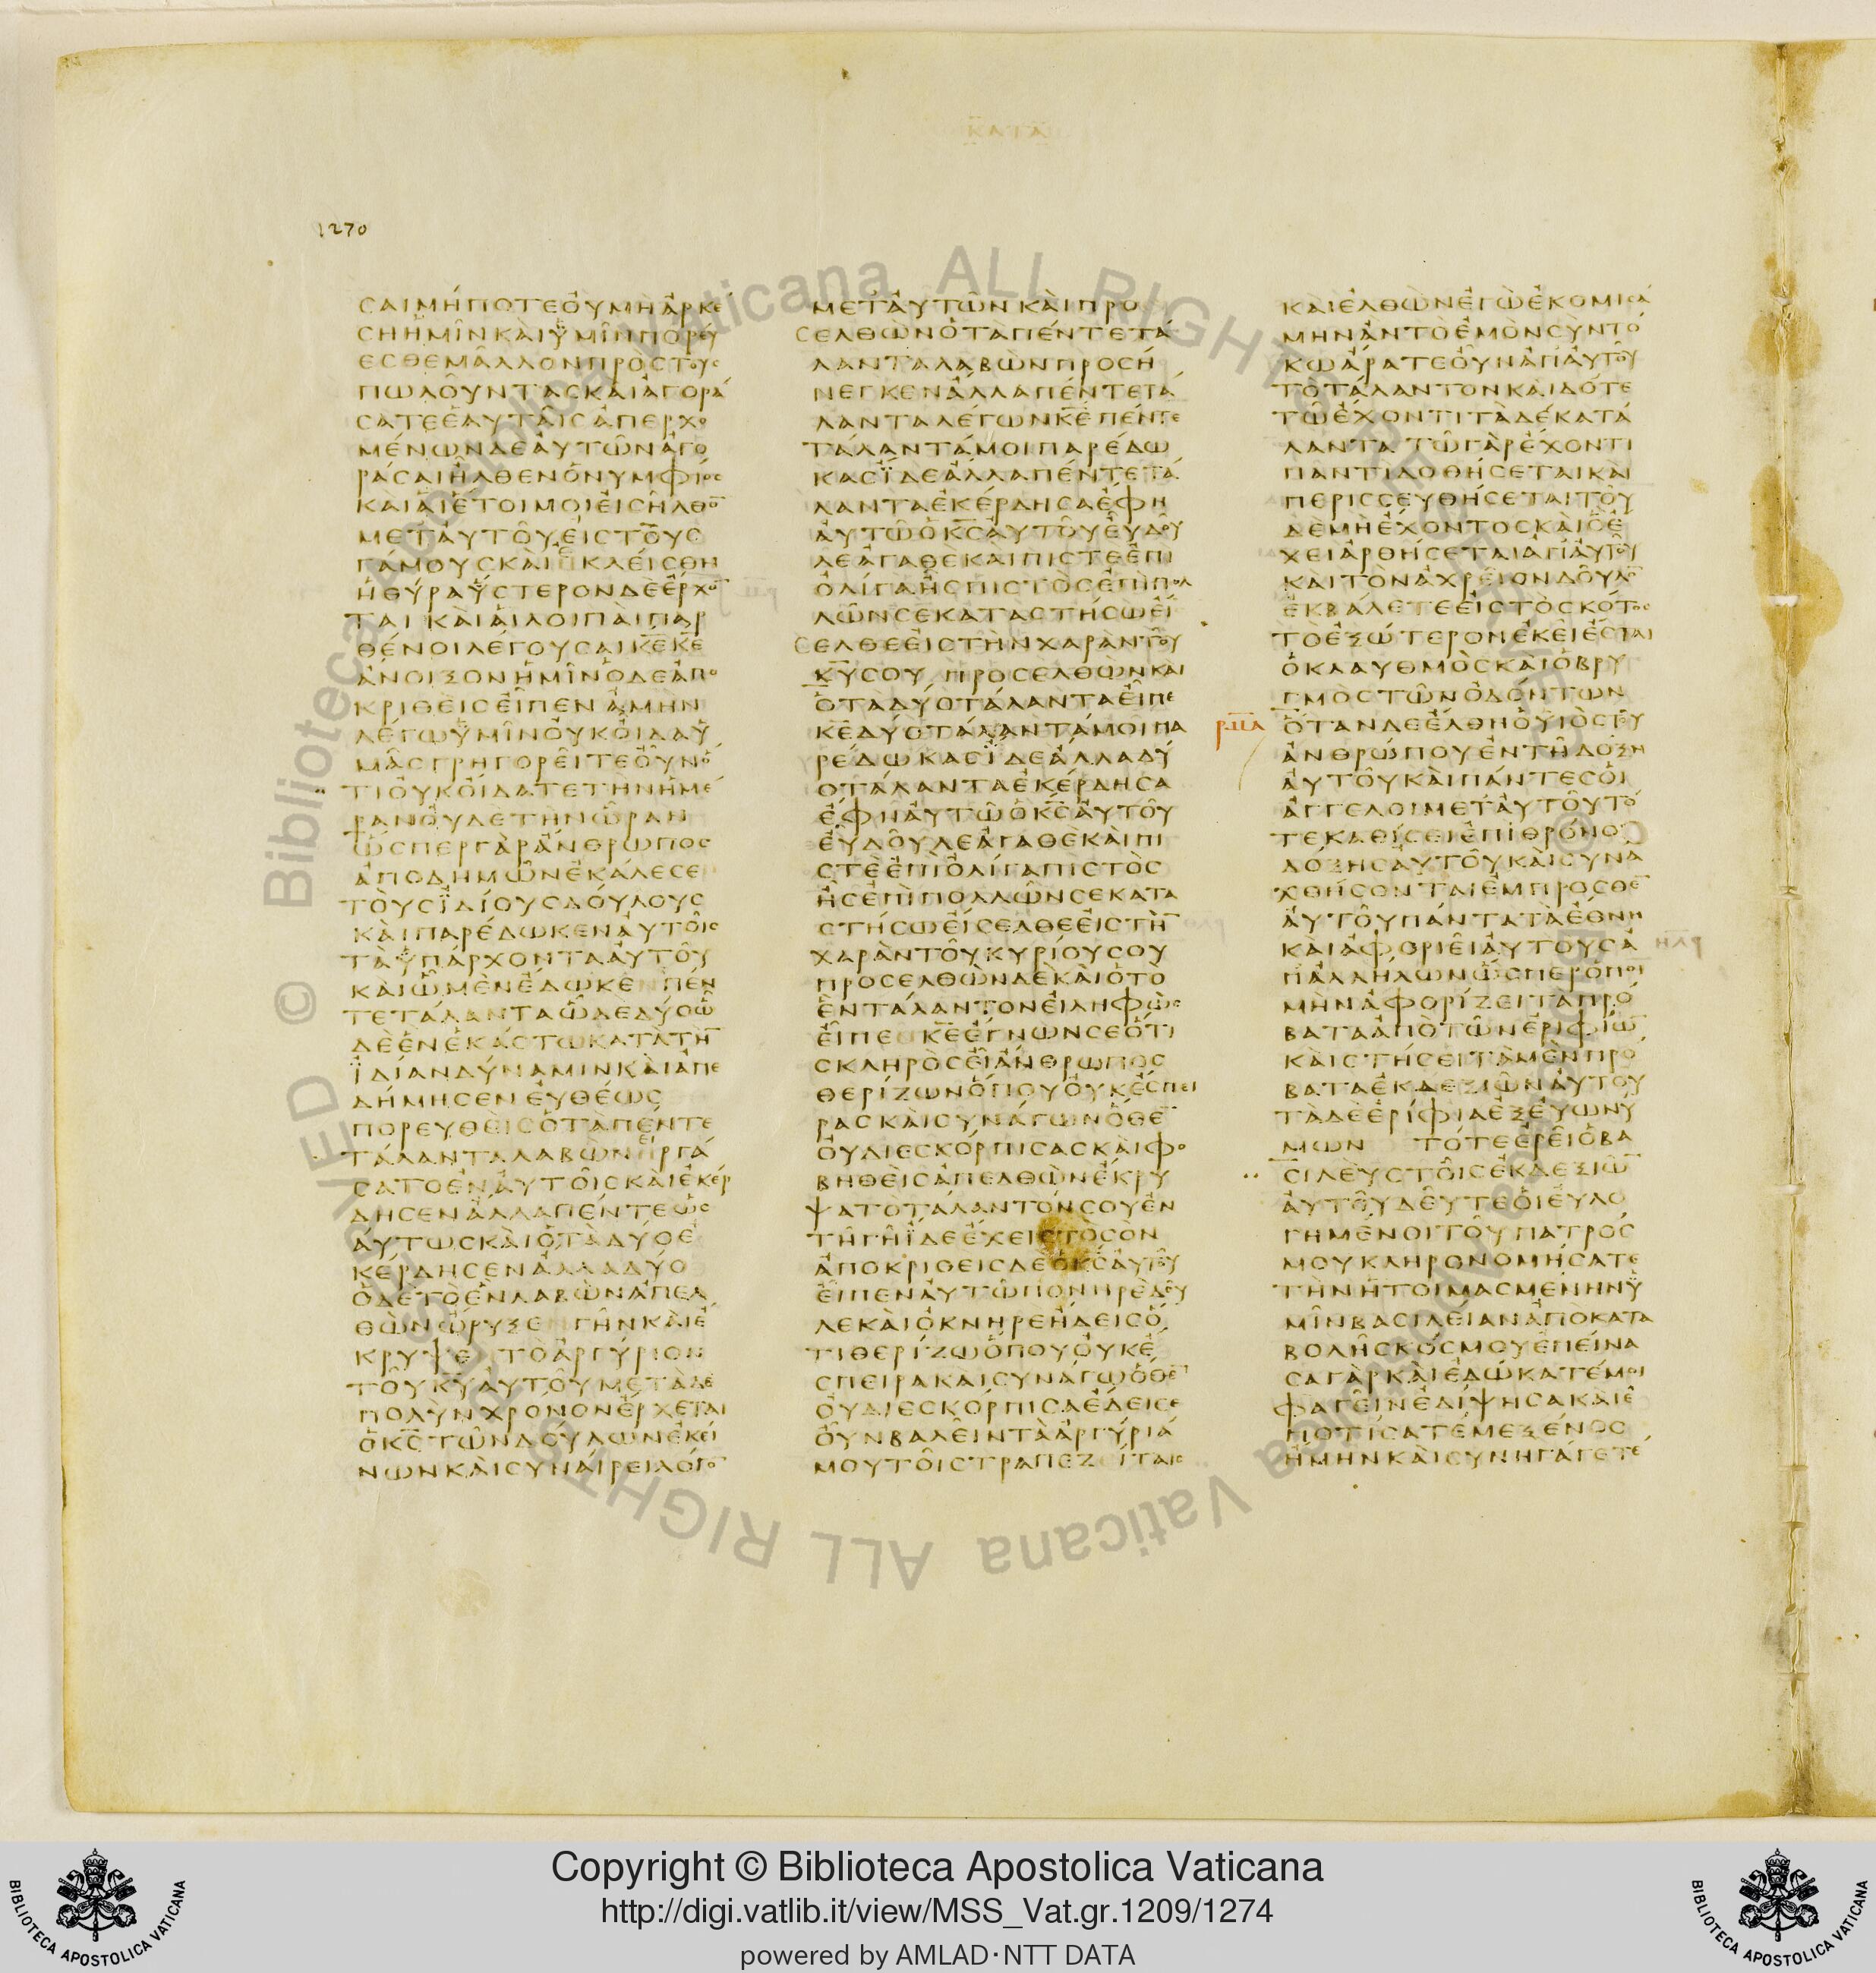 ΚΑΤΑ
1270
ϹΑΙΜΉΠΟΤΕΟΥ̓ΜῊἈΡΚΕ
ϹΗἩΜΙ͂ΝΚΑῚΫΜΙ͂ΝΠΟΡΕΥ
ΕϹΘΕΜΑ͂ΛΛΟΝΠΡῸϹΤΟΥϹ
ΠΩΛΟΥ͂ΝΤΑϹΚΑῚἈΓΟΡΑ
ϹΑΤΕἙΑΥΤΑΙ͂ϹἈΠΕΡΧΟ
ΜΈΝΩΝΔΕἈΥΤΩ͂ΝἈΓΟ
ΡΆϹΑΙἮΛΘΕΝὉΝΥΜΦΙΟϹ
ΚΑῚἉΙἝΤΟΙΜΟΙἘΙϹΗ͂ΛΘΟ̅
ΜΕΤἈΥΤΟΥ͂ἘΙϹΤΟῪϹ
ΓΆΜΟΥϹΚΑῚΕΚΛΈΙϹΘΗ
ἩΘΎΡΑΫϹΤΕΡΟΝΔΕἜΡΧΟ̅
ΤΑΙ ΚΑῚἉΙΛΟΙΠΑῚΠΑΡ
ΘΈΝΟΙΛΈΓΟΥϹΑΙΚ̅Ε̅Κ̅Ε̅
ἌΝΟΙΞΟΝἩΜΙ͂ΝὉΔΕἈΠΟ
ΚΡΙΘΕῚϹἘΙ͂ΠΕΝἈΜΗΝ
ΛΈΓΩΫΜΙ͂ΝΟΥ̓ΚΟἸΔΑΫ
ΜΑ͂ϹΓΡΗΓΟΡΕΙ͂ΤΕΟΥ̓͂ΝΟ
ΤΙΟΥ̓ΚΟἸΔΑΤΕΤῊΝἩΜΕ
ΡΑΝΟΥ̓ΔῈΤῊΝὩΡΑΝ
ὩϹΠΕΡΓᾺΡἌΝΘΡΩΠΟϹ
ἈΠΟΔΗΜΩ͂ΝἘΚΆΛΕϹΕ
ΤΟῪϹΪΔΊΟΥϹΔΟΎΛΟΥϹ
ΚΑῚΠΑΡΈΔΩΚΕΝἈΥΤΟΙ͂Ϲ
ΤᾺΫΠΆΡΧΟΝΤΑἈΥΤΟΥ͂
ΚΑῚὩΜῈΝἜΔΩΚΕΝΠΕΝ
ΤΕΤΆΛΑΝΤΑὩΔῈΔΎΟΩ
ΔῈἛΝἙΚΆϹΤΩΚΑΤᾺΤΗ̅
ΪΔΊΑΝΔΎΝΑΜΙΝΚΑῚἈΠΕ
ΔΉΜΗϹΕΝ ἘΥΘΈΩϹ
ΠΟΡΕΥΘΕῚϹὉΤᾺΠΈΝΤΕ
ΤΆΛΑΝΤΑΛΑΒῺΝΗΡΓΑ
ϹΑΤΟΕΝἈΥΤΟΙ͂ϹΚΑῚἘΚΕΡ
ΔΗϹΕΝἌΛΛΑΠΈΝΤΕΩϹ
ΑΎΤΩϹΚΑῚὉΤᾺΔΎΟΕ
ΚΈΡΔΗϹΕΝἌΛΛΑΔΎΟ
ὉΔῈΤῸἛΝΛΑΒῺΝἈΠΕΛ
ΘῺΝὨΡΥΞΕΝΓΗ͂ΝΚΑῚΕ
ΚΡΥΨΕΝΤῸἈΡΓΎΡΙΟΝ
ΤΟΥ͂Κ̅Υ̅ἈΥΤΟΥ͂ΜΕΤΑΔΕ
ΠΟΛῪΝΧΡΌΝΟΝἜΡΧΕΤΑΙ
ὉΚ̅Ϲ̅ΤΩ͂ΝΔΟΎΛΩΝἘΚΕΙ
ΝΩΝΚΑῚϹΥΝΑΊΡΕΙΛΌΓΟ̅
ΜΕΤἈΥΤΩ͂ΝΚΑῚΠΡΟ
ϹΕΛΘῺΝὉΤᾺΠΈΝΤΕΤΑ
ΛΑΝΤΑΛΑΒῺΝΠΡΟϹΗ
ΝΕΓΚΕΝἌΛΛΑΠΈΝΤΕΤΑ
ΛΑΝΤΑΛΈΓΩΝΚ̅Ε̅ΠΈΝΤΕ
ΤΆΛΑΝΤΆΜΟΙΠΑΡΈΔΩ
ΚΑϹΪΔΕἌΛΛΑΠΈΝΤΕΤΑ
ΛΑΝΤΑἘΚΈΡΔΗϹΑἜΦΗ
ἈΥΤΩ͂ὉΚ̅Ϲ̅ἈΥΤΟΥ͂ἘΥΔΟΥ
ΛΕἈΓΑΘῈΚΑΙΠΙϹΤΕἘΠΙ
ὈΛΊΓΑἨϹΠΙϹΤῸϹἘΠῚΠΟΛ
ΛΩ͂ΝϹΕΚΑΤΑϹΤΉϹΩΕΙ
ϹΕΛΘΕἘΙϹΤῊΝΧΑΡᾺΝΤΟΥ
Κ̅Υ̅ϹΟΥ ΠΡΟϹΕΛΘΩΝΚΑΙ
ὉΤᾺΔΎΟΤΆΛΑΝΤΑἘΙ͂ΠΕ
Κ̅Ε̅ΔΎΟΤΆΛΑΝΤΆΜΟΙΠΑ
ΡΈΔΩΚΑϹΪΔΕἌΛΛΑΔΥ
ΟΤΆΛΑΝΤΑἘΚΈΡΔΗϹΑ
ἜΦΗἈΥΤΩ͂ὉΚ̅Ϲ̅ἈΥΤΟΥ͂
ἘΥΔΟΥ͂ΛΕἈΓΑΘῈΚΑῚΠΙ
ϹΤῈἘΠῚὈΛΊΓΑΠΙϹΤῸϹ
ἮϹἘΠῚΠΟΛΛΩ͂ΝϹΕΚΑΤΑ
ϹΤΉϹΩἘΙϹΕΛΘΕἘΙϹΤΗ̅
ΧΑΡᾺΝΤΟΥ͂ΚΥΡΊΟΥϹΟΥ
ΠΡΟϹΕΛΘῺΝΔῈΚΑῚὉΤΟ
ἛΝΤΆΛΑΝΤΟΝἘΙΛΗΦῺϹ
ἘΙ͂ΠΕΚ̅Ε̅ἜΓΝΩΝϹΕὍΤΙ
ϹΚΛΗΡῸϹἘΙ͂ἌΝΘΡΩΠΟϹ
ΘΕΡΊΖΩΝὍΠΟΥΟΥ̓ΚἜϹΠΕΙ
ΡΑϹΚΑῚϹΥΝΆΓΩΝὍΘΕ̅
ΟΥ̓ΔΙΕϹΚΌΡΠΙϹΑϹΚΑῚΦΟ
ΒΗΘΕῚϹἈΠΕΛΘῺΝἜΚΡΥ
ΨΑΤῸΤΆΛΑΝΤΌΝϹΟΥΕΝ
ΤΗ͂ΓΗ͂ΪΔΕἜΧΕΙϹΤῸϹῸΝ
ἈΠΟΚΡΙΘΕΙϹΔῈὉΚ̅Ϲ̅ἈΥΤΟΥ
ἘΙ͂ΠΕΝἈΥΤΩ͂ΠΟΝΗΡῈΔΟΥ
ΛΕΚΑῚὈΚΝΗΡῈἬΔΕΙϹΟ
ΤΙΘΕΡΊΖΩὍΠΟΥΟΥ̓ΚΕ
ϹΠΕΙΡΑΚΑΙϹΥΝΆΓΩὍΘΕ̅
ΟΥ̓ΔΙΕϹΚΌΡΠΙϹΑἜΔΕΙϹΕ
ΟΥ̓͂ΝΒΑΛΕΙ͂ΝΤᾺἈΡΓΎΡΙΆ
ΜΟΥΤΟΙ͂ϹΤΡΑΠΕΖΕΊΤΑΙϹ
ΚΑῚἘΛΘῺΝἘΓῺἘΚΟΜΙϹΑ
ΜΗΝἊΝΤῸἘΜῸΝϹῪΝΤΟ
ΚΩἌΡΑΤΕΟΥ̓͂ΝἈΠἈΥΤΟΥ
ΤῸΤΆΛΑΝΤΟΝΚΑῚΔΌΤΕ
ΤΩ͂ἜΧΟΝΤΙΤᾺΔΈΚΑΤΑ
ΛΑΝΤΑ ΤΩ͂ΓᾺΡἜΧΟΝΤΙ
ΠΑΝΤΙΔΟΘΉϹΕΤΑΙΚΑΙ
ΠΕΡΙϹϹΕΥΘΉϹΕΤΑΙΤΟΥ
ΔῈΜῊἜΧΟΝΤΟϹΚΑῚὋΕ
ΧΕΙἈΡΘΉϹΕΤΑΙἈΠἈΥΤΟΥ
ΚΑΙΤῸΝἈΧΡΕΙ͂ΟΝΔΟΥ͂ΛΟ̅
ἘΚΒΆΛΕΤΕἘΙϹΤῸϹΚΌΤΟϹ
ΤῸἘΞΏΤΕΡΟΝἘΚΕΙ͂ἜϹΤΑΙ
ὉΚΛΑΥΘΜῸϹΚΑῚὉΒΡΥ
ΓΜῸϹΤΩ͂ΝὈΔΌΝΤΩΝ
ΡΜΑ ὍΤΑΝΔΕἜΛΘΗὉΥΙῸϹΤΟΥ
ἈΝΘΡΏΠΟΥἘΝΤΗ͂ΔΌΞΗ
ἈΥΤΟΥ͂ΚΑῚΠΆΝΤΕϹΟΙ
ἌΓΓΕΛΟΙΜΕΤἈΥΤΟΥ͂ΤΟ
ΤΕΚΑΘΊϹΕΙἘΠῚΘΡΌΝΟΥ
ΔΌΞΗϹἈΥΤΟΥ͂ΚΑῚϹΥΝΑ
ΧΘΉϹΟΝΤΑΙἜΜΠΡΟϹΘΕ̅
ἈΥΤΟΥ͂ΠΆΝΤΑΤᾺἜΘΝΗ
ΚΑῚἈΦΟΡΙΕΙ͂ἈΥΤΟΥϹΑ
ΠἈΛΛΉΛΩΝὩϹΠΕΡὉΠΟΙ
ΜῊΝἈΦΟΡΊΖΕΙΤᾺΠΡΟ
ΒΑΤΑἈΠῸΤΩ͂ΝἘΡΙΦΊΩ̅
ΚΑῚϹΤΉϹΕΙΤᾺΜῈΝΠΡΟ
ΒΑΤΑἘΚΔΕΞΙΩ͂ΝἈΥΤΟΥ
ΤᾺΔῈἘΡΊΦΙΑἘΞἘΥΩΝΥ
ΜΩΝ ΤΌΤΕἘΡΕΙ͂ὉΒΑ
ϹΙΛΕῪϹΤΟΙ͂ϹἘΚΔΕΞΙΩ̅
ἈΥΤΟΥ͂ΔΕΥ͂ΤΕΟΙἘΥΛΟ
ΓΗΜΈΝΟΙΤΟΥ͂ΠΑΤΡΌϹ
ΜΟΥΚΛΗΡΟΝΟΜΉϹΑΤΕ
ΤῊΝἩΤΟΙΜΑϹΜΈΝΗΝΫ
ΜΙ͂ΝΒΑϹΙΛΕΊΑΝἈΠῸΚΑΤΑ
ΒΟΛΗ͂ϹΚΌϹΜΟΥἘΠΕΊΝΑ
ϹΑΓᾺΡΚΑῚἘΔΏΚΑΤΈΜΟΙ
ΦΑΓΕΙ͂ΝἘΔΊΨΗϹΑΚΑῚΕ
ΠΟΤΊϹΑΤΈΜΕΞΈΝΟϹ
ἬΜΗΝΚΑῚϹΥΝΗΓΆΓΕΤΕ
Copyright © Biblioteca Apostolica Vaticana
http://digi.vatlib.it/view/MSS_Vat.gr.1209/1274
powered by AMLAD·NTT DATA
BIBLIOTECA APOSTOLICA VATICANA
BIBLIOTECA APOSTOLICA VATICANA